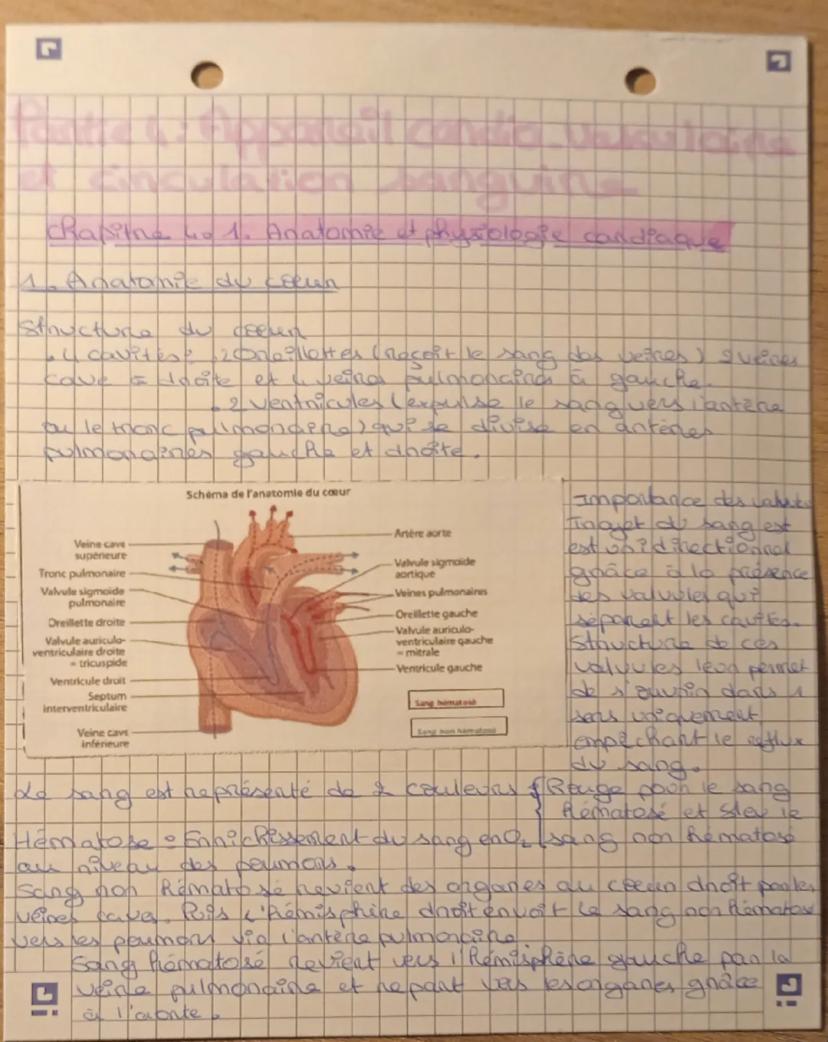 Partie 4 : Appareil cardio-vasculaire
et circulation sanguine
Chapitre 4.1. Anatomie et physiologie cardiaque
1. Anatomie du coeur
Structure du coeur
. 4 cavités : . 2 Oreillettes (reçoit le sang des veines) 2 veines
cave = droite et 4 veines pulmonaires à gauche.
. 2 ventricules (expulse le sang vers l'artère
ou le tronc pulmonaire) qui se divise en artères
pulmonaires gauche et droite.
Schéma de l'anatomie du cœur
Veine cave
supérieure
Tronc pulmonaire
Valvule sigmoïde
pulmonaire
Oreillette droite
Valvule auriculo-
ventriculaire droite
= tricuspide
Ventricule droit
Septum
interventriculaire
Veine cave
inférieure
Artère aorte
Valvule sigmoïde
aortique
Veines pulmonaires
Oreillette gauche
Valvule auriculo-
ventriculaire gauche
= mitrale
Ventricule gauche
Sang hématosé
Sang non hématosé
Importance des
Trajet du sang est
est unidirectionnel
grâce à la présence
des valvules qui
séparent les cavités.
Structure de ces
valvules leur permet
de s'ouvrir dans 1
sens uniquement,
empêchant le reflux
du sang.
Le sang est représenté de 2 couleurs { Rouge pour le sang
hématosé et bleu le
Hématose = Enrichissement du sang en O2 sang non hématosé
au niveau des poumons.
Sang non hématosé revient des organes au coeur droit par les
veines caves. Puis l'hémisphère droit envoit le sang non hématosé
vers les poumons via l'artère pulmonaire.
Sang hématosé revient vers l'hémisphère gauche par la
veine pulmonaire et repart vers les organes grâce
à l'aorte.